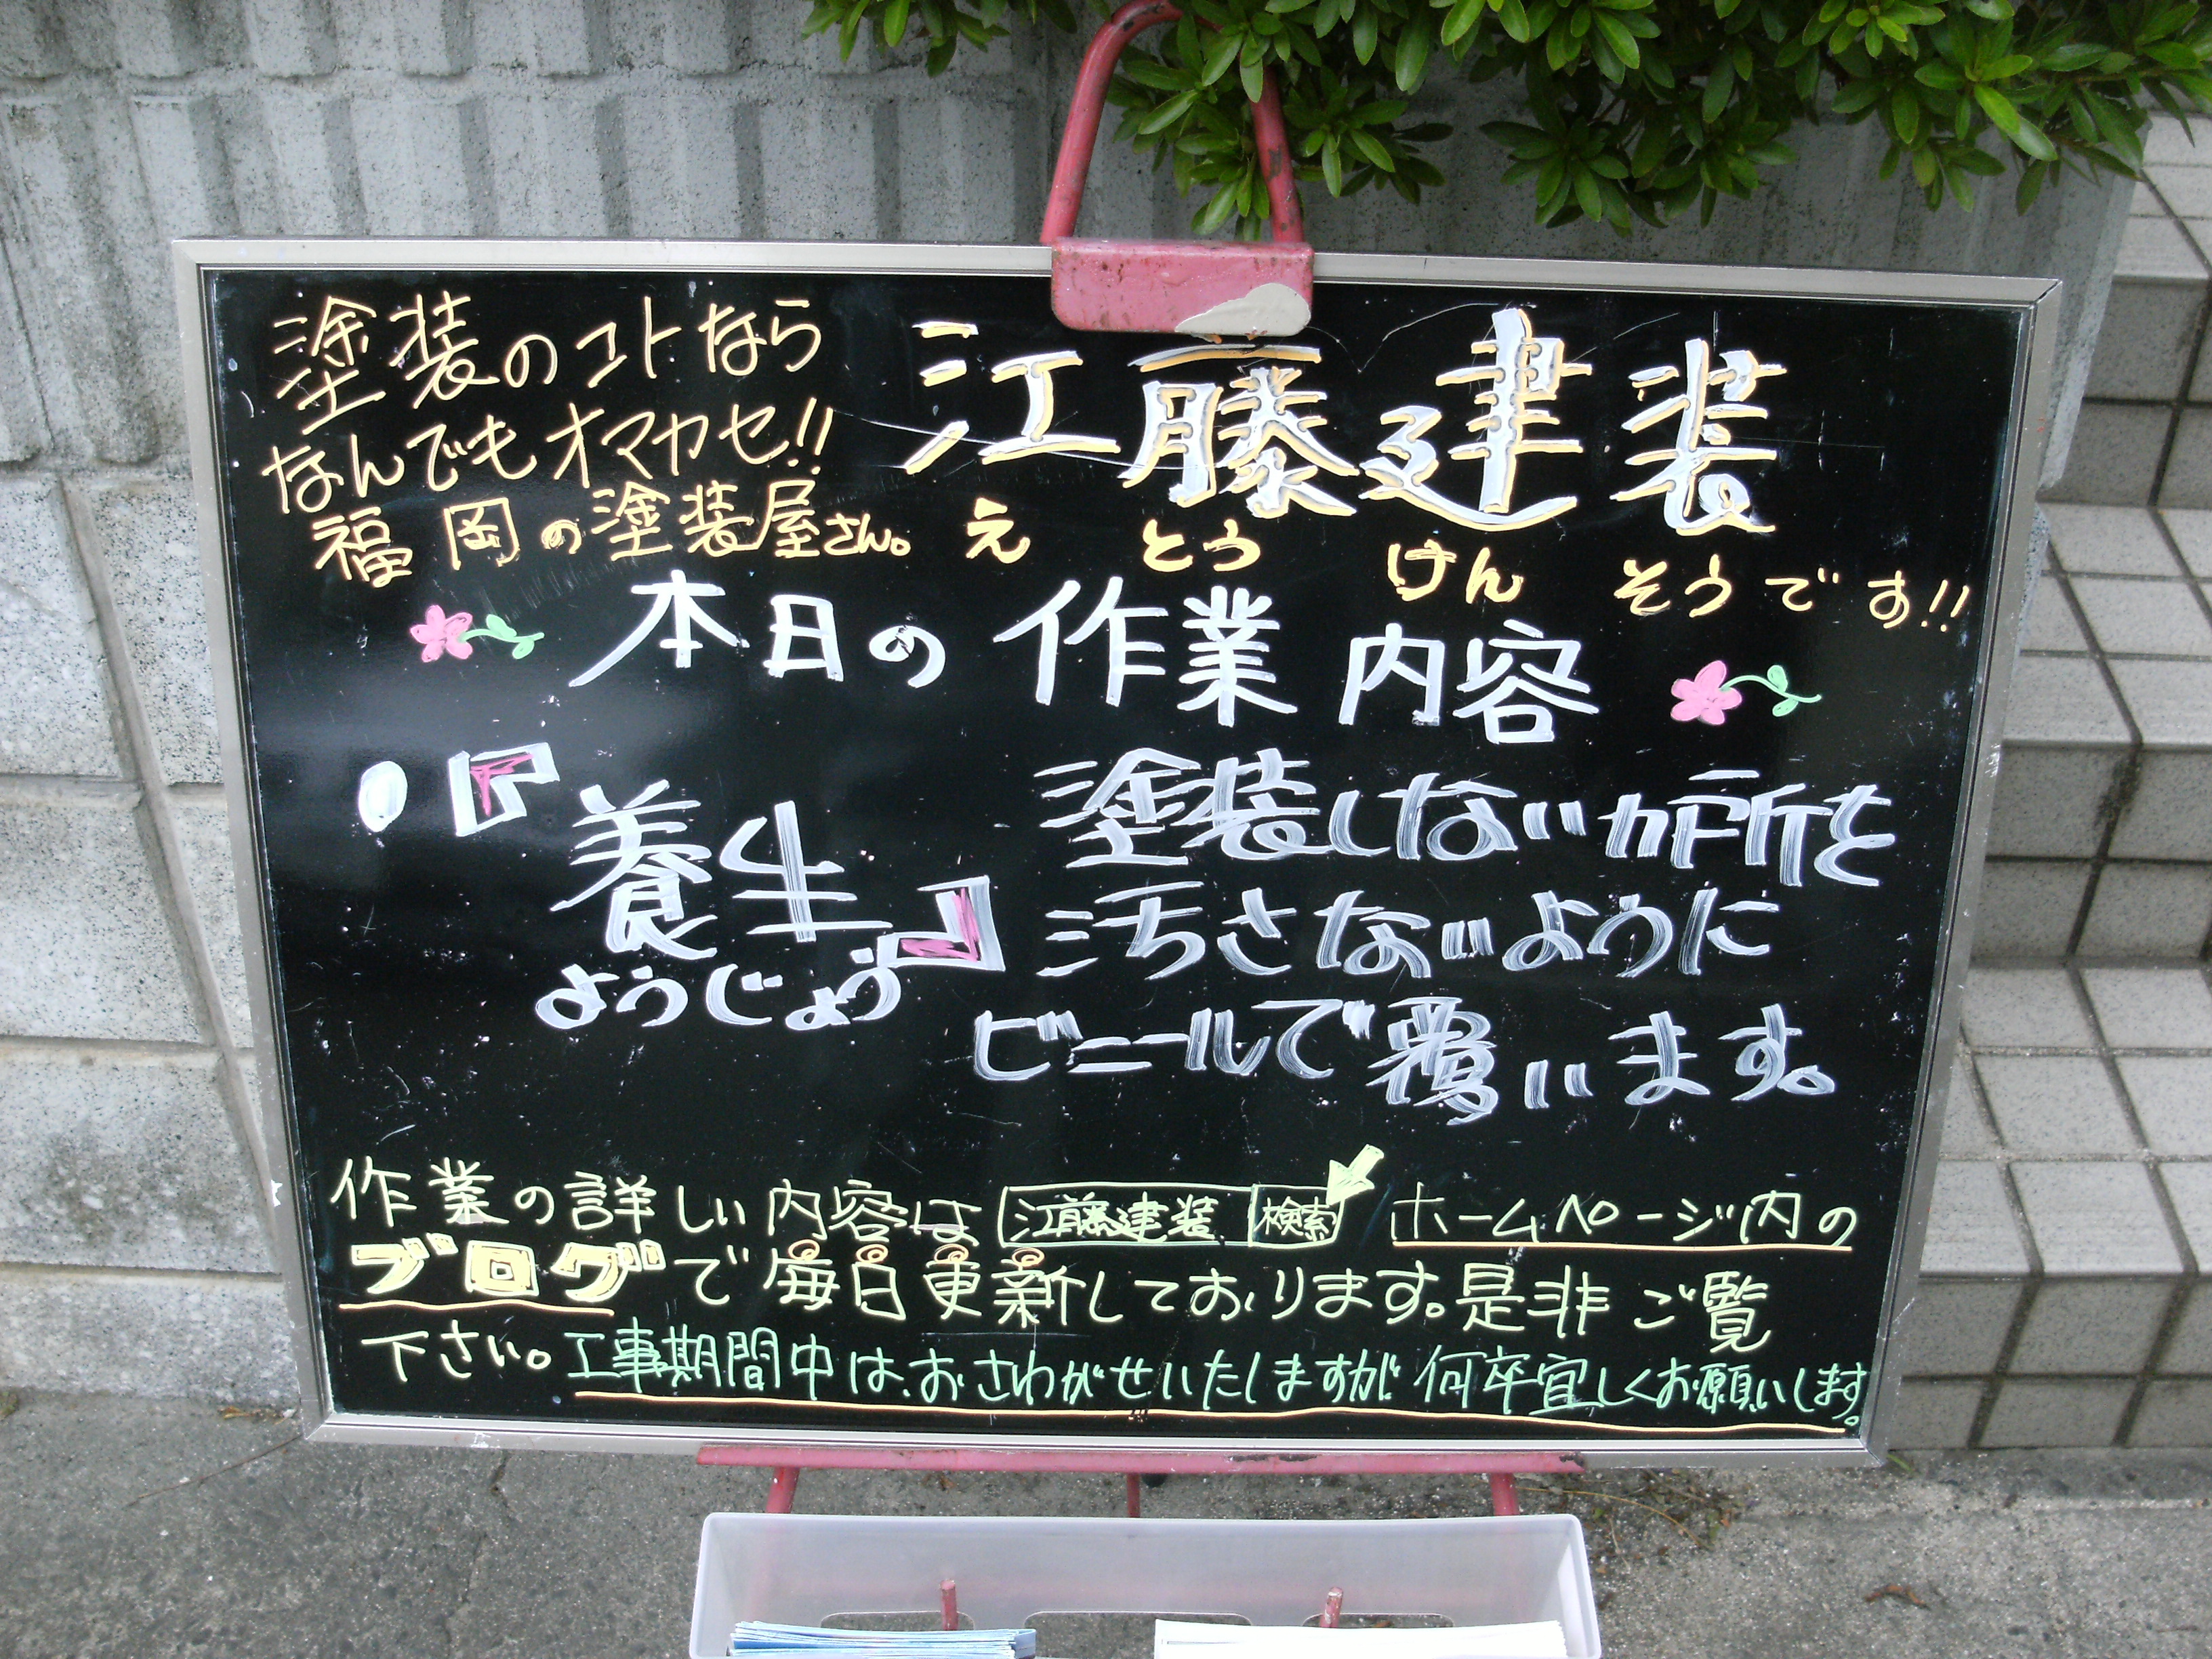 塗装のコトなら
なんでもオマカセ!!
福岡の塗装屋さん。
江藤建装
えとうけんそうです!!
本日の作業内容
●『養生』
ようじょう
塗装しないか所を
汚さないように
ビニールで覆います。
作業の詳しい内容は 江藤建装 検索 ホームページ内の
ブログで毎日更新しております。是非ご覧
下さい。工事期間中は、おさわがせいたしますが何卒宜しくお願いします。